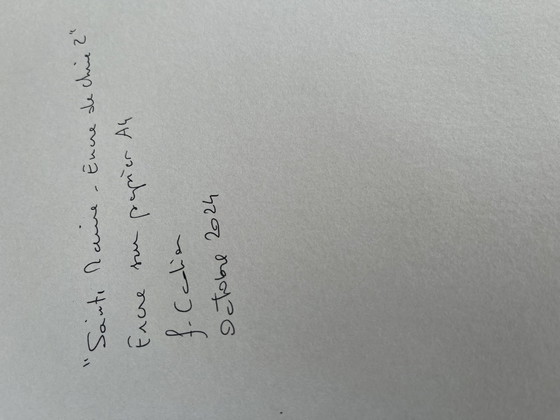 "Sainte Marine - Encre de Chine 2"
Encre sur papier A4
f.
Octobre 2024